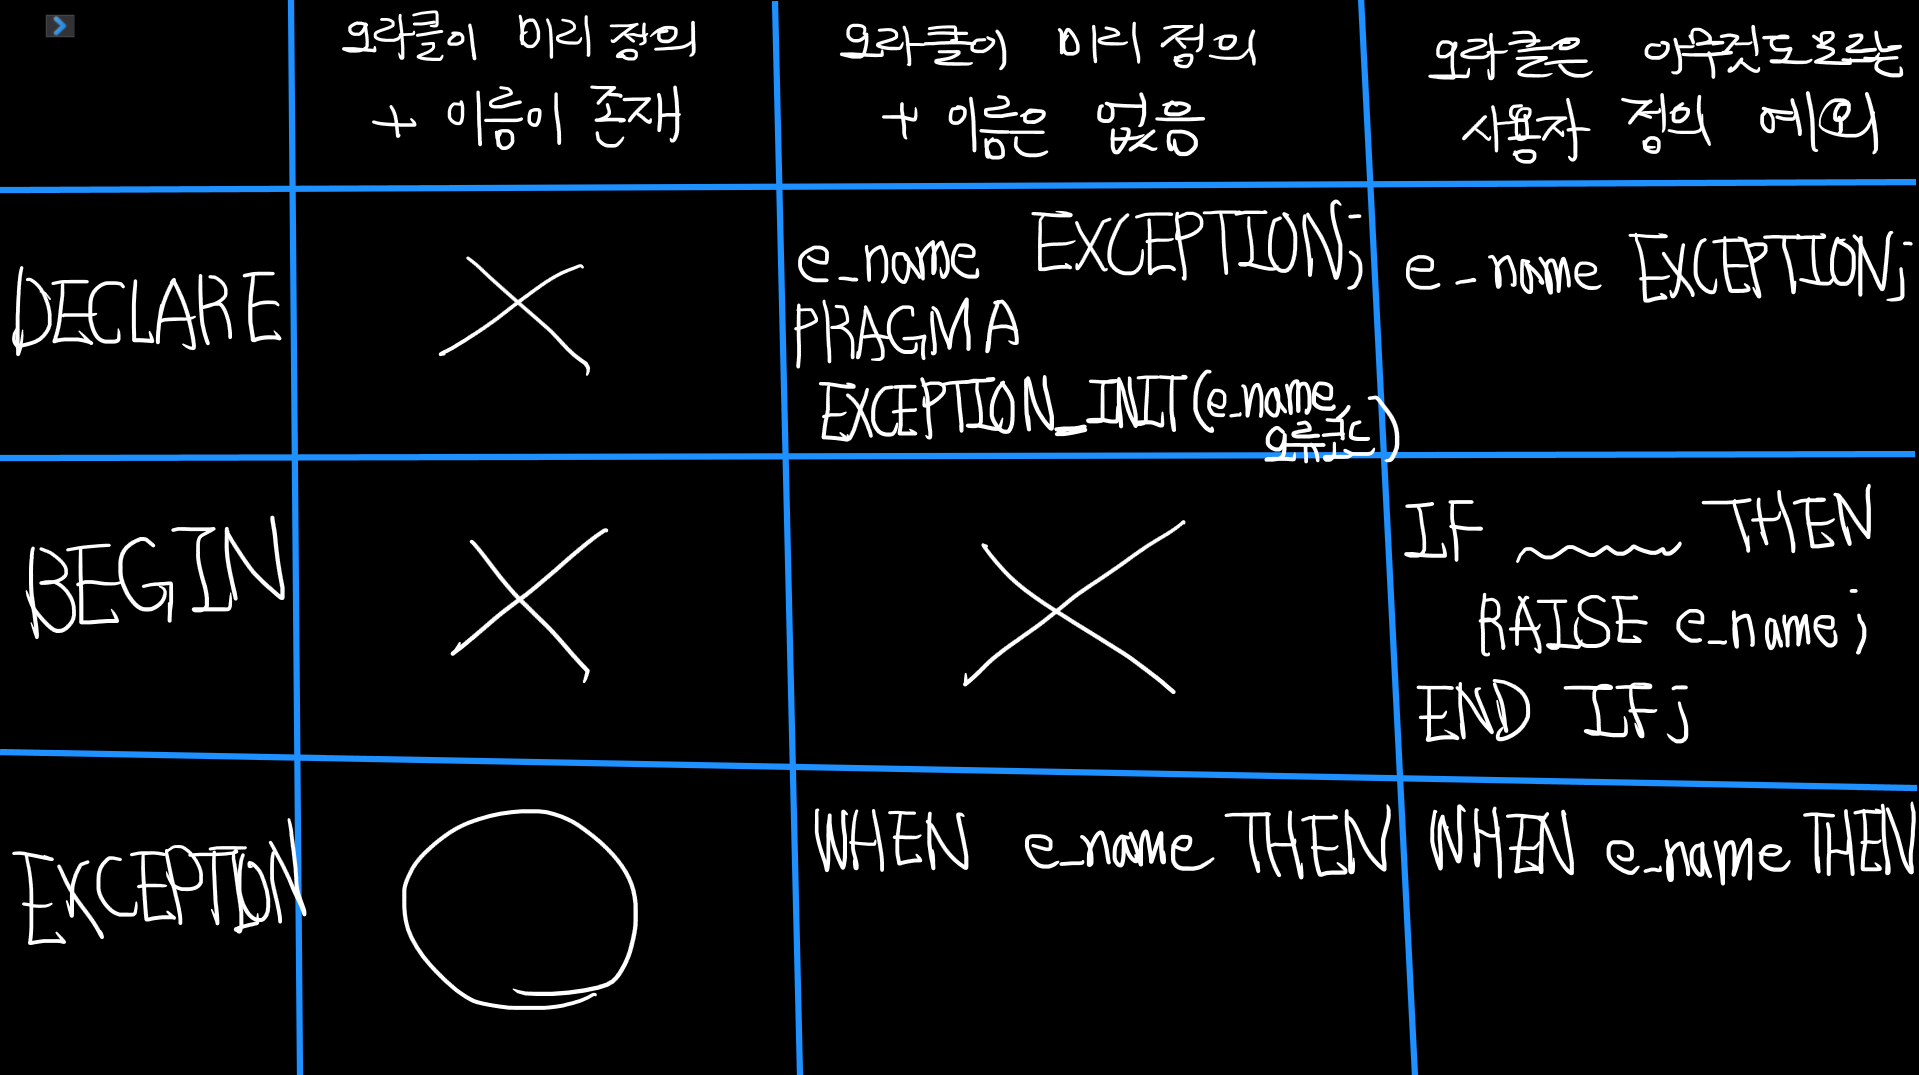 오라클이 미리 정의
+ 이름이 존재
오라클이 미리 정의
+ 이름은 없음
오라클은 아무것도 모르는
사용자 정의 예외
DECLARE
e_name EXCEPTION;
PRAGMA
EXCEPTION_INIT(e_name,
오류코드)
e_name EXCEPTION;
BEGIN
IF THEN
RAISE e_name;
END IF;
EXCEPTION
WHEN e_name THEN
WHEN e_name THEN